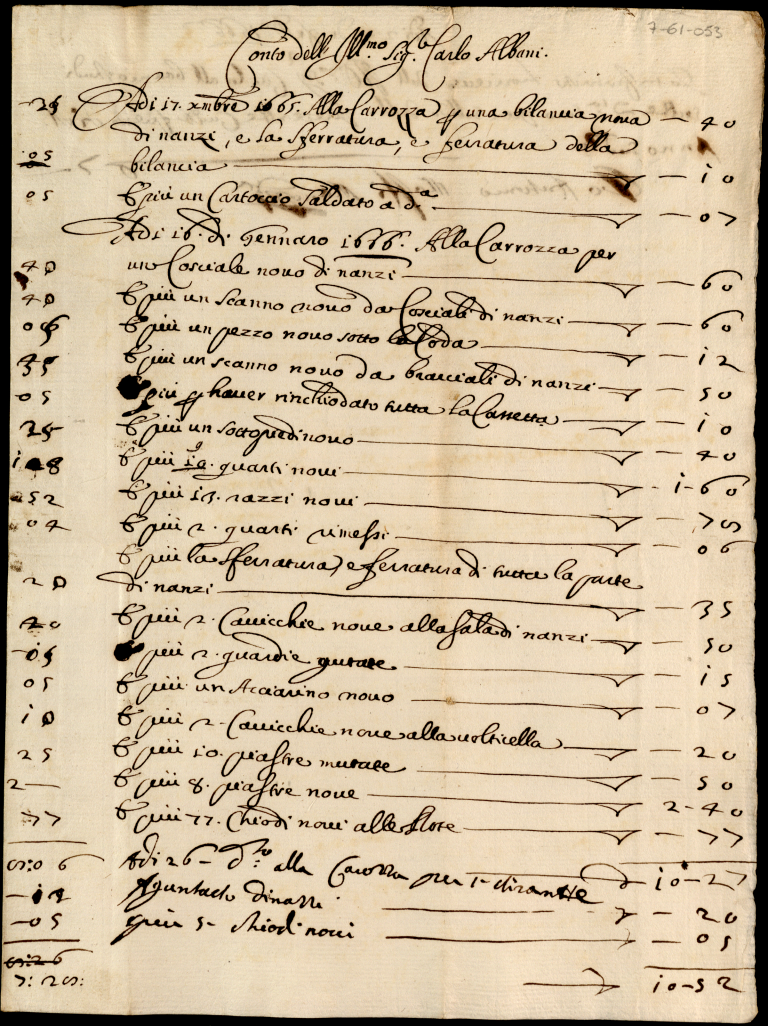 7-61-053
Conto dell Ill.mo Sig.re Carlo Albani.
25 Adi 17. xmbre 1665. Alla Carrozza p una bilancia nova — 40
di nanzi, e la sferratura, e ferratura della
05 bilancia — 10
05 E più un Cartoccio saldato a d.a — 07
Adi 16. di Gennaro 1666. Alla Carrozza per
40 un Cosciale novo di nanzi — 60
40 E più un scanno novo da Cosciali di nanzi — 60
06 E più un pezzo novo sotto la Coda — 12
35 E più un scanno novo da bracciali di nanzi — 50
05 E più p haver rinchiodato tutta la Cassetta — 10
25 E più un sottopiedi novo — 40
108 E più quarti novi — 1-60
52 E più 13. razzi novi — 78
04 E più 2. quarti rimessi — 06
E più la sferratura, e ferratura di tutta la parte
20 di nanzi — 35
40 E più 2. Cavicchie nove alla sala di nanzi — 50
-15 E più 2. guardie mutate — 15
05 E più un Acciarino novo — 07
10 E più 2. Cavicchie nove alla volticella — 20
25 E più 10. piastre mutate — 50
2— E più 8. piastre nove — 2-40
77 E più 77. Chiodi novi alle Rote — 77
6:06 Adi 26 - d.to alla Carozza per 1- tirante — 10-27
-14 Aguntato dinazzi — 20
-05 più 5- chiodi novi — 05
6:26
7: 25: 10-52